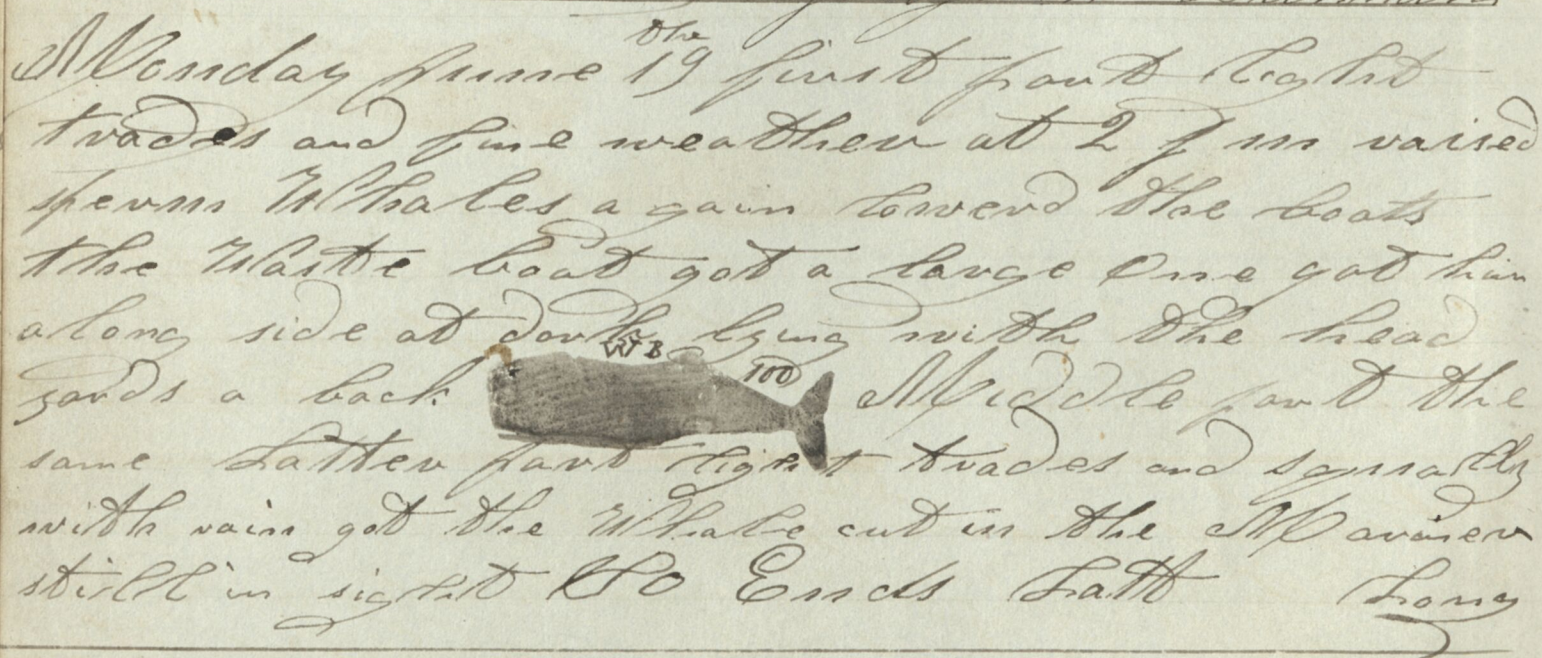 Monday June 19 the first part light
trades and fine weather at 2 P m raised
sperm Whales a gain lowerd the boats
the Waste boat got a large One got him
along side at dark lying with the head
yards a back W B 100 Middle part the
same Latter part light trades and squally
with rain got the Whale cut in the Mariner
still in sight So Ends Latt Long